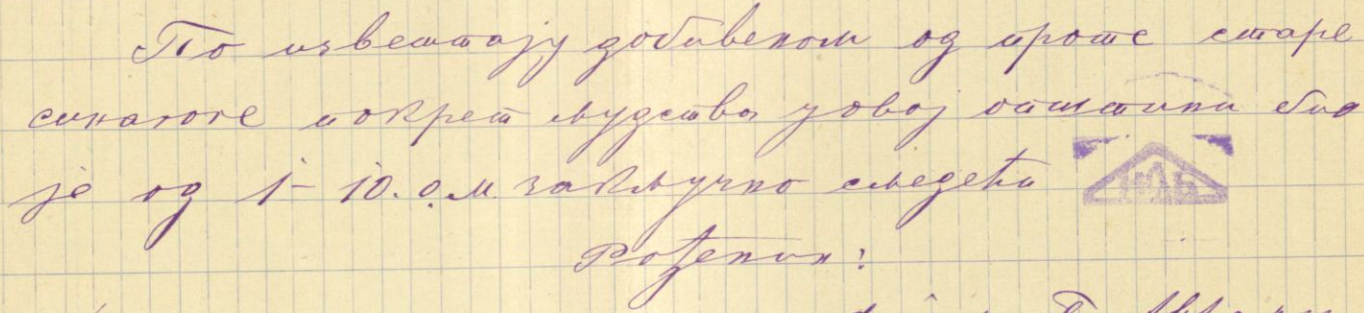 По извештају добивеном од проте старе
синагоге покрет људства у овој општини био
је од 1-10. о.м. закључно сљедећи
Рођених: